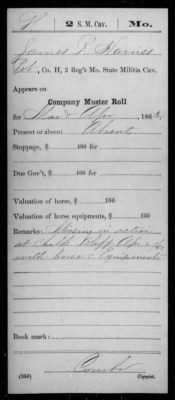 H | 2 S. M. Cav. | Mo.
James P. Harness
Pvt., Co. H, 2 Reg't Mo. State Militia Cav.
Appears on
Company Muster Roll
for Mar & Apr, 186
Present or absent Absent
Stoppage, $ 100 for
Due Gov't, $ 100 for
Valuation of horse, $ 100
Valuation of horse equipments, $ 100
Remarks: Missing in action
at Chalk Bluff Apr
with horse & Equipments
Book mark:
(656)
Copyist.